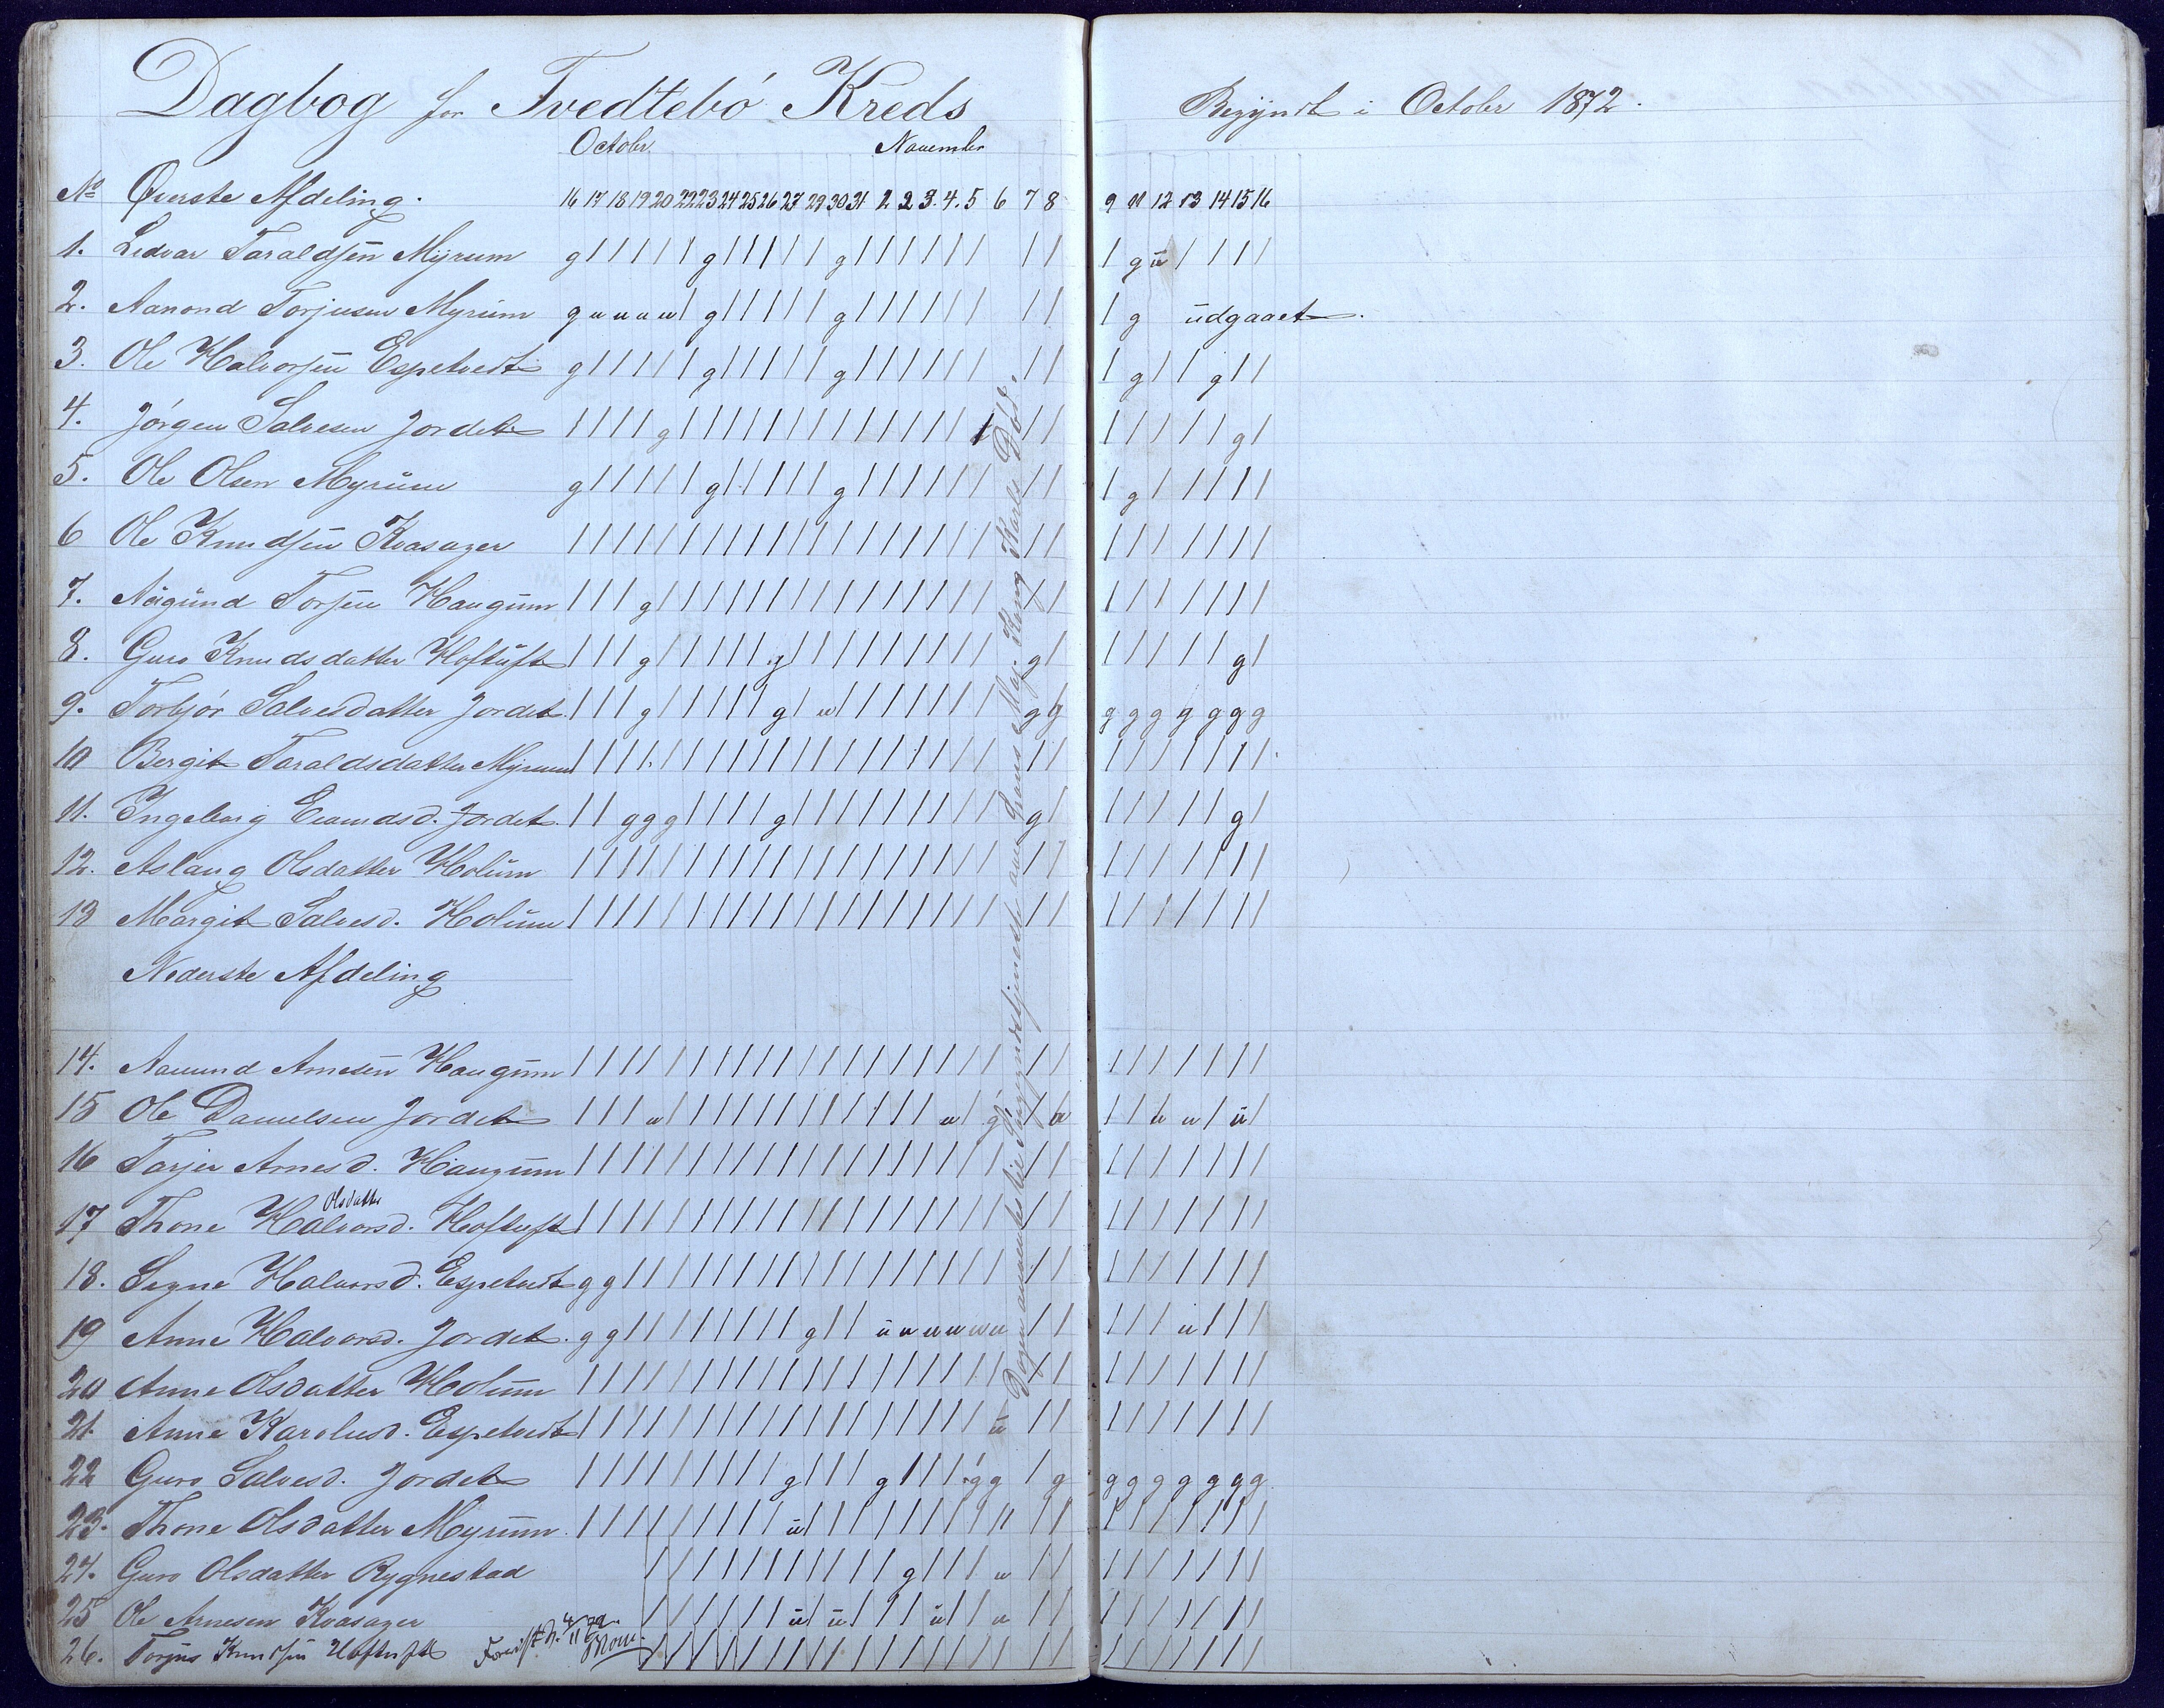 Dagbog for Tvedtebö Kreds
Begyndt i October 1872.
October November
No Øverste Afdeling. 16 17 18 19 20 22 23 24 25 26 27 29 30 31 1 2 3. 4. 5 6 7 8 9 11 12 13 14 15 16
1. Ledvar Taraldsen Myrum g / / / / / g / / / / / g / / / / / / / / / g u / / / /
2. Aanond Torjusen Myrum g u u u u / g / / / / / g / / / / / / / / / g udgaaet.
3. Ole Halvorsen Espetvedt g / / / / / g / / / / / g / / / / / / / / / g / / g / /
4. Jörgen Salvesen Jordet / / / / g / / / / / / / / / / / / / / / / / / / / / g /
5. Ole Olsen Myrum g / / / / / g / / / / / g / / / / / / / / / g / / / / /
6 Ole Knudsen Kvasager / / / / / / / / / / / / / / / / / / / / / / / / / / / /
7. Torsen Haugum / / / g / / / / / / / / / / / / / / / / / / / / / / / /
8. Guro Knudsdatter Hoftuft / / / g / / / / / g / / / / / / / / / g / / / / / / g /
9. Torbjör Salvesdatter Jordet / / / g / / / / / g / u / / / / / / / g g g g g g g g g
10 Bergit Taraldsdatter Myrum / / / / / / / / / / / / / / / / / / / / / / / / / / / /
11. Ingeborg Evindsd. Jordet. / / g g g / / / / g / / / / / / / / / g / / / / / / g /
12. Aslaug Olsdatter Holum / / / / / / / / / / / / / / / / / / / / / / / / / / / /
13 Margit Salvesd. Holum / / / / / / / / / / / / / / / / / / / / / / / / / / / /
Nederste Afdeling
14. Aamund Arnesen Haugum / / / / / / / / / / / / / / / / / / / / / / / / / / / /
15 Ole Danielsen Jordet / / / u / / / / / / / / / / / / / u / g / u / / u u / u /
16 Tarjer Arnesd. Haugum / / / / / / / / / / / / / / / / / / / / / / / / / / / /
Olsdatter
17 Thone Halvorsd. Hoftuft / / / / / / / / / / / / / / / / / / / / / / / / / / / /
18. Signe Halvorsd. Espetvedt g g / / / / / / / / / / / / / / / / / / / / / / / / / /
19 Anne Halvorsd. Jordet. g g / / / / / / / / g / / u u u u u u / / / / / u / / /
20 Anne Olsdatter Holum / / / / / / / / / / / / / / / / / / / / / / / / / / / /
21. Anne Karolusd. Espetvedt / / / / / / / / / / / / / / / / / / u / / / / / / / / /
22 Guro Salvesd. Jordet / / / / / / / / / g / / / g / / / g g / g g g g g g g g
23. Thone Olsdatter Myrum / / / / / / / / / u / / / / / / / / / / / / / / / / / /
24. Guro Olsdatter Rygnestad / / / / / / / / / / / g / / / u / / / / / / / / /
25 Ole Arnesen Kvasager / / / / / / u / u / / / u / / u / / / / / / / / /
26. Torjus Knudsen Hoftuft / / / / / / / / / / / / / / / / / / / / / / / / /
4/11 72
Dagen anvendes Sørgegudstjeneste over Hans Maj. Kong Karls Død.